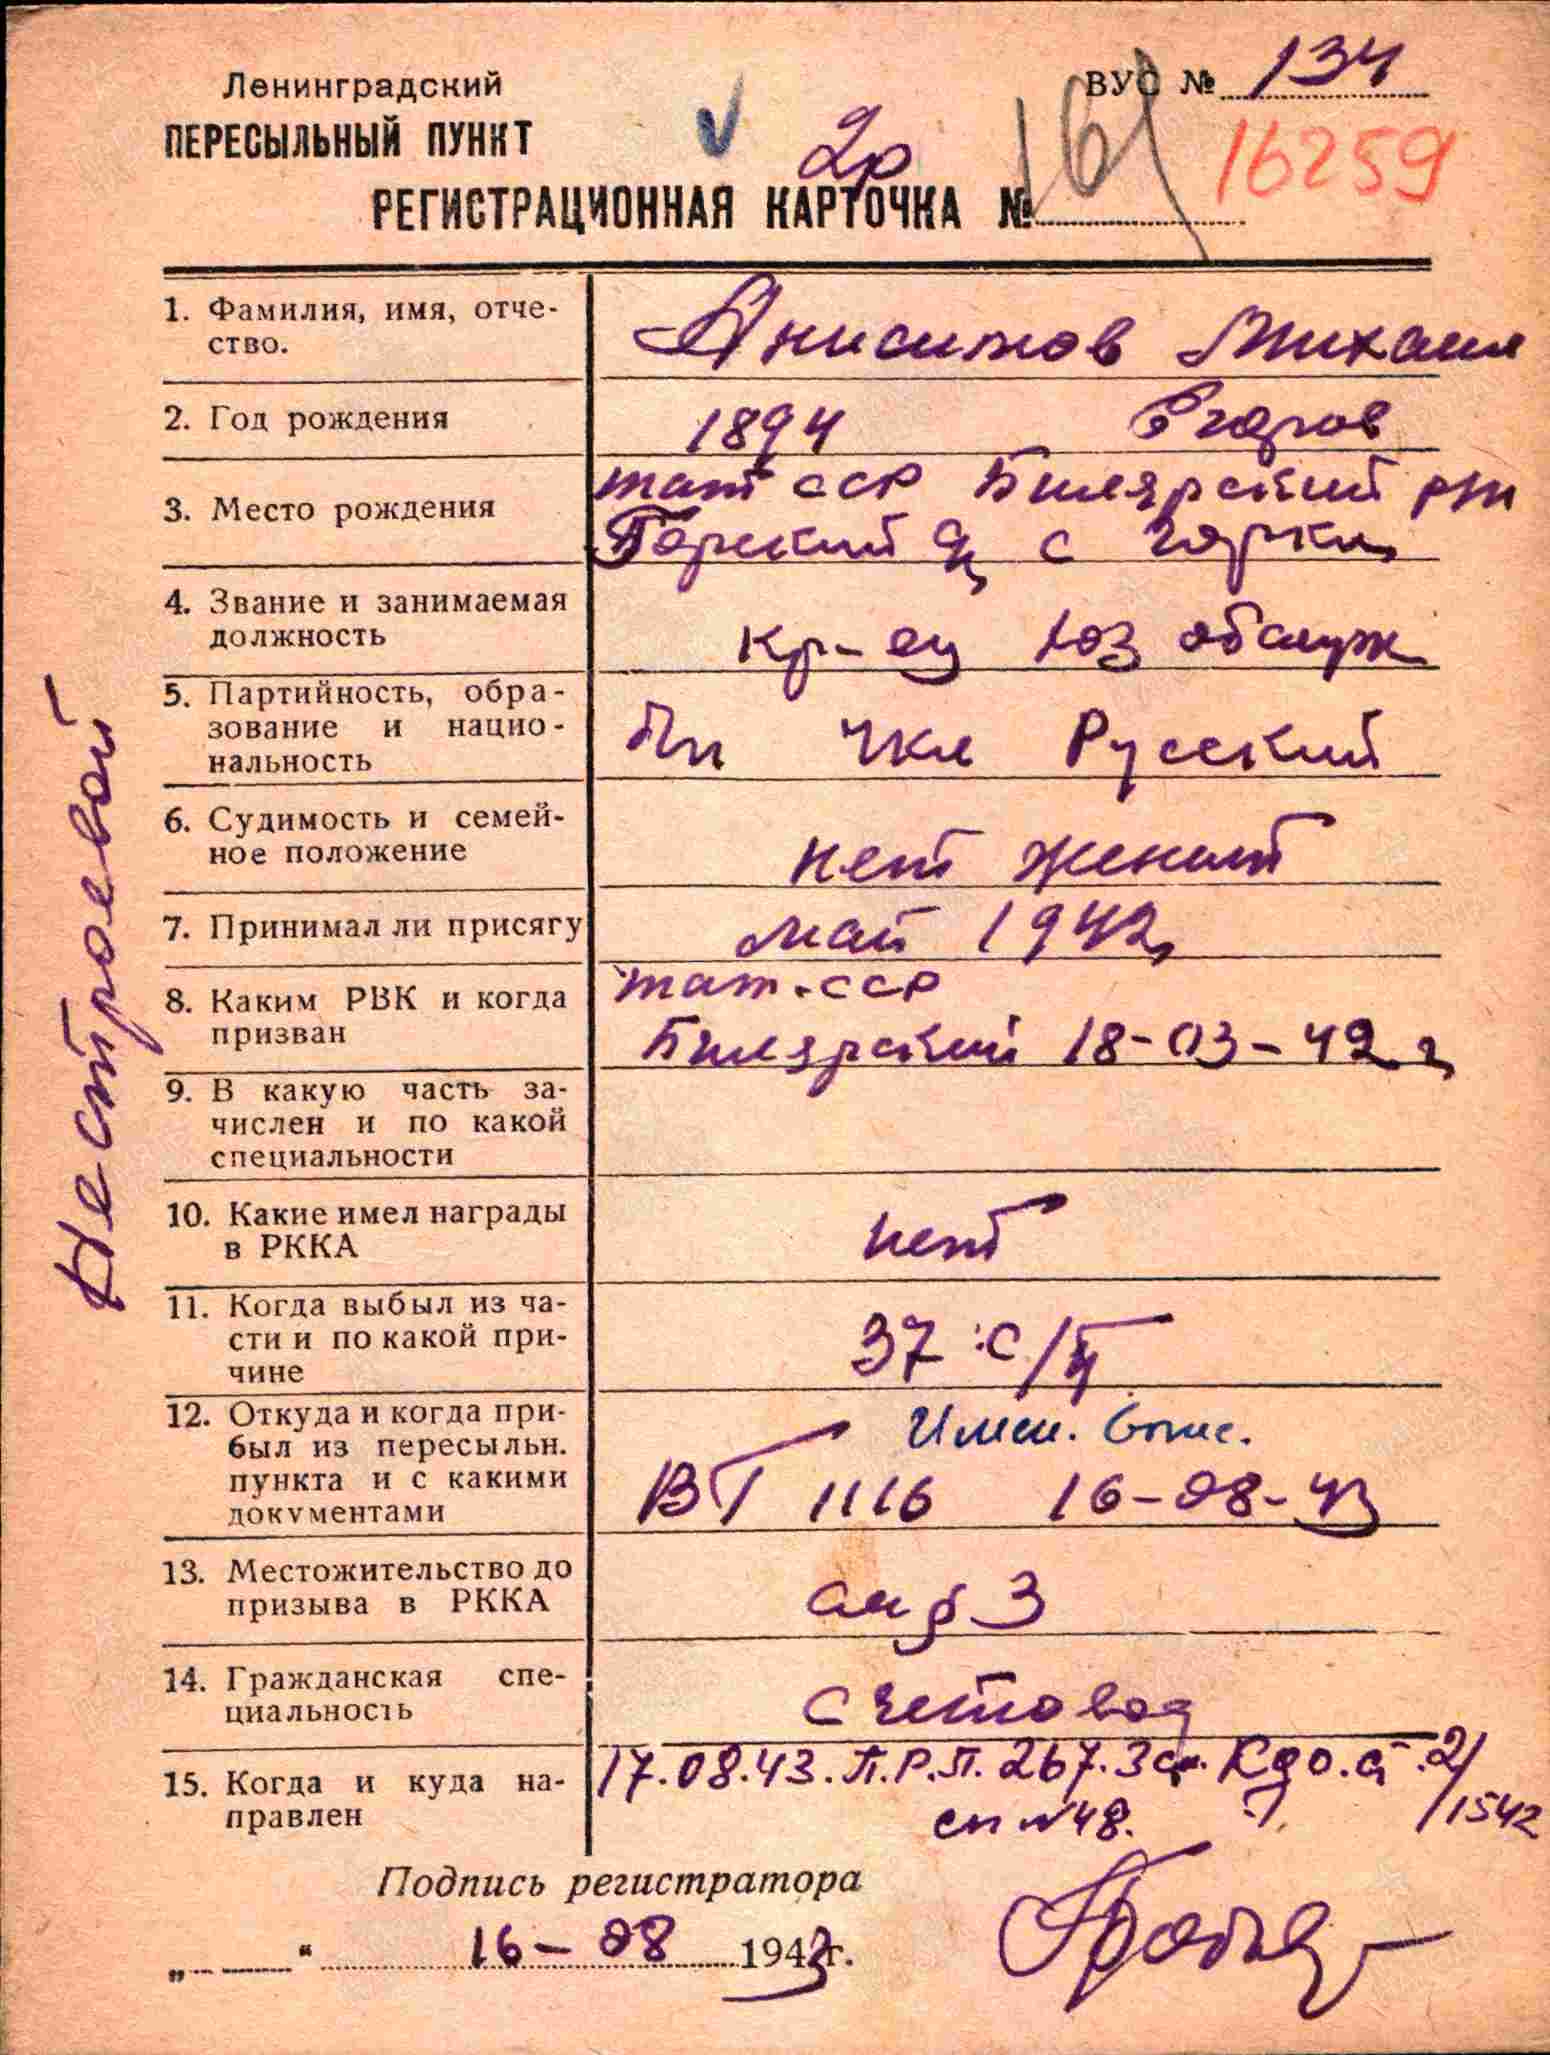 Ленинградский
ПЕРЕСЫЛЬНЫЙ ПУНКТ
ВУС № 134
2р
161
16259
РЕГИСТРАЦИОННАЯ КАРТОЧКА №
Нестроевой
1. Фамилия, имя, отче-
ство.
Анисимов Михаил
Егоров
2. Год рождения
1894
3. Место рождения
тат ССР Билярский рн
Горский с горки
4. Звание и занимаемая
должность
кр-ец хоз обслуж
5. Партийность, обра-
зование и нацио-
нальность
бп 4кл Русский
6. Судимость и семей-
ное положение
нет женат
7. Принимал ли присягу
май 1942
8. Каким РВК и когда
призван
тат. ССР
Билярский 18-03-42 г
9. В какую часть за-
числен и по какой
специальности
10. Какие имел награды
в РККА
нет
11. Когда выбыл из ча-
сти и по какой при-
чине
37 с/д
12. Откуда и когда при-
был из пересыльн.
пункта и с какими
документами
Имен. спис.
ВГ 1116 16-08-43
13. Местожительство до
призыва в РККА
см гр 3
14. Гражданская спе-
циальность
счетовод
15. Когда и куда на-
правлен
17.08.43. П.Р.П. 267. 3 сп. Кдо. 2/1542
сп №48.
Подпись регистратора
„ “ 16-08 1943 г.